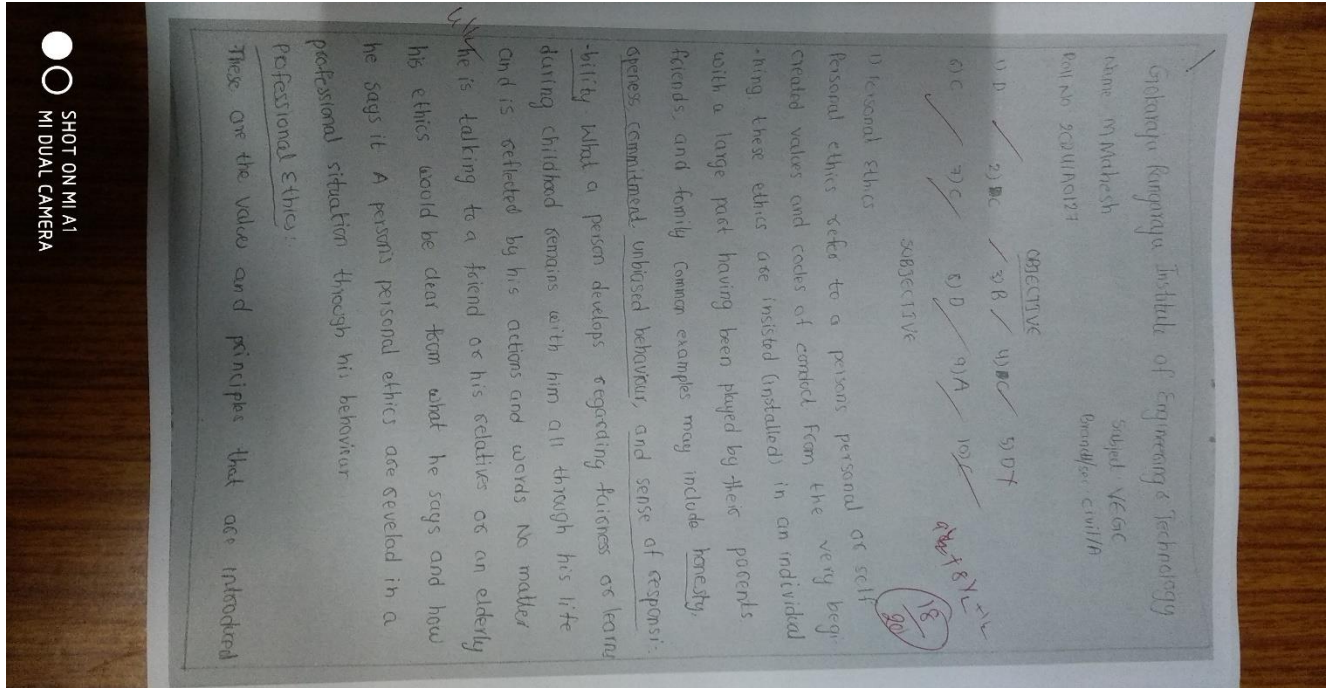 Gokaraju Rangaraju Institute of Engineering & Technology
Name M Mahesh
Subject VEGC
Roll No 20241A0127
Branch/sec civil/A
OBJECTIVE
1) D 2) C 3) B 4) C 5) D
6) C 7) C 8) D 9) A 10)
+ 8½ + ½
18/20
SUBJECTIVE
1) Personal Ethics
Personal ethics refer to a persons personal or self
created values and codes of conduct from the very begi-
-ning, these ethics are insisted (installed) in an individual
with a large part having been played by their parents
friends, and family common examples may include honesty,
openess, commitment, unbiased behaviour, and sense of responsi-
-bility What a person develops regarding fairness or learns
during childhood remains with him all through his life
and is reflected by his actions and words No matter
he is talking to a friend or his relatives or an elderly
his ethics would be clear from what he says and how
he says it A person's personal ethics are reveled in a
professional situation through his behaviour
Professional Ethics:
These are the values and principles that are introduced
SHOT ON MI A1
MI DUAL CAMERA